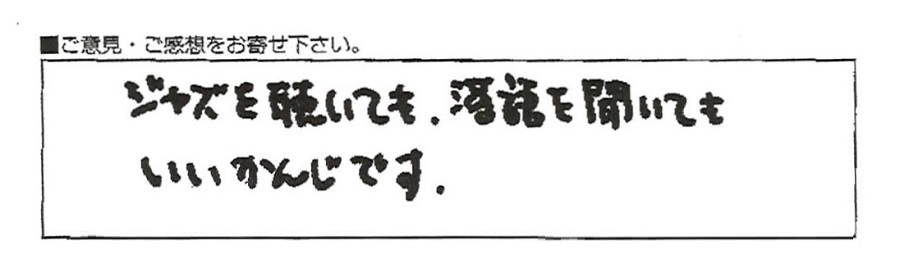 ■ご意見・ご感想をお寄せ下さい。
ジャズを聴いても.落語を聞いても
いいかんじです.